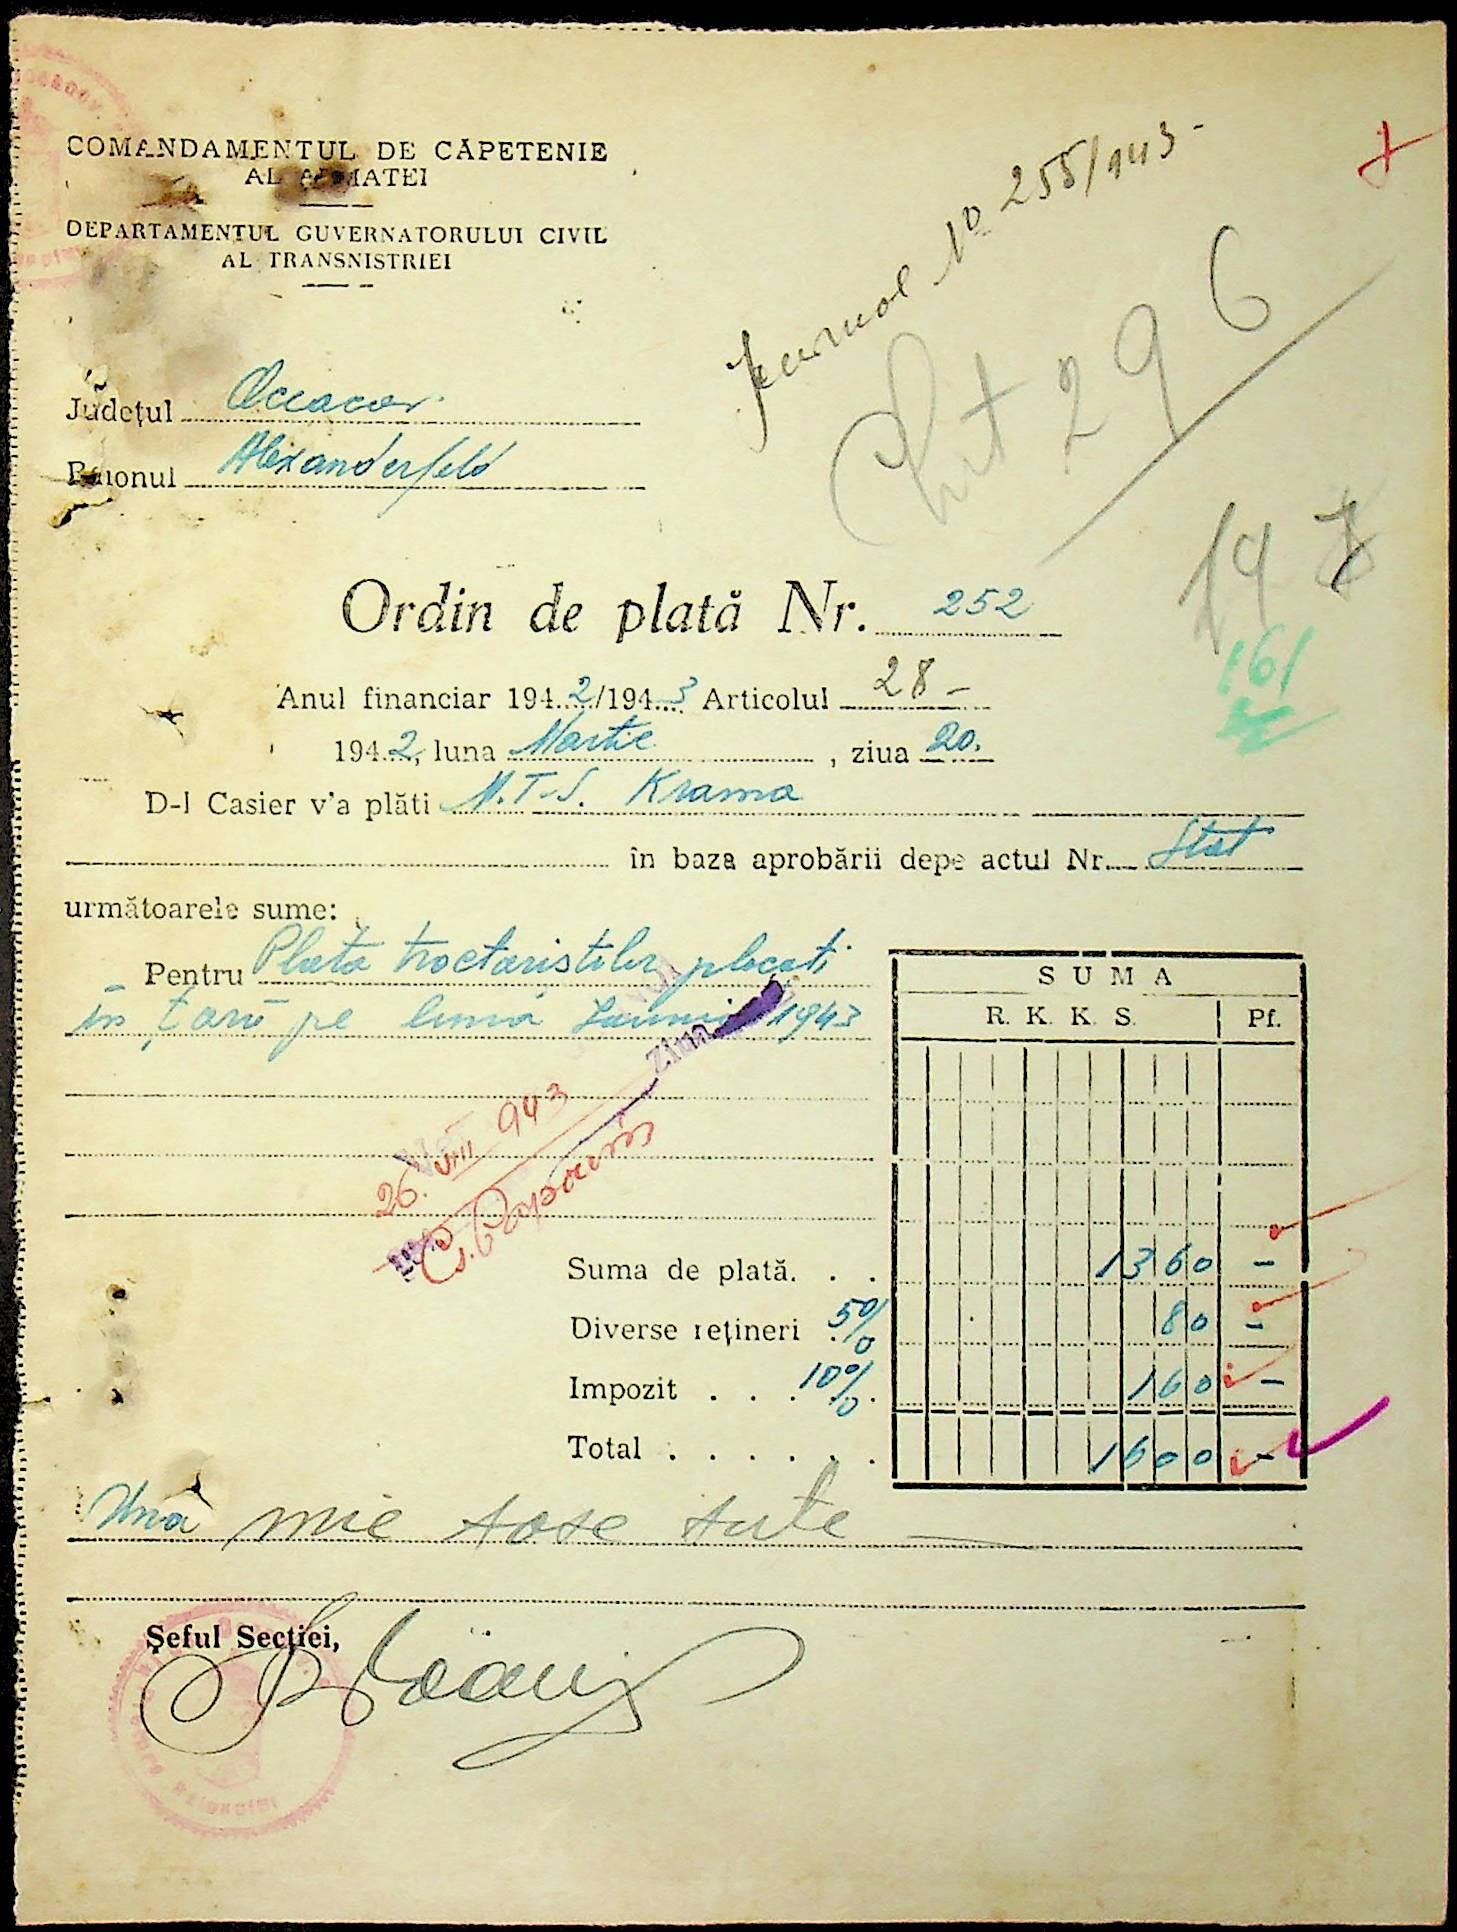 COMANDAMENTUL DE CĂPETENIE
AL ARMATEI
DEPARTAMENTUL GUVERNATORULUI CIVIL
AL TRANSNISTRIEI
Jurnal No 258/143-
Chit 296
Județul Oceacov.
Raionul Alexanderfeld
Ordin de plată Nr. 252
161
Anul financiar 1942/1943 Articolul 28-
1942, luna Martie, ziua 20.
D-l Casier v'a plăti M.T-S. Krasna
în baza aprobării depe actul Nr. Stat
următoarele sume:
Pentru Plata tractoriștilor plecați
în țară pe luna 1943
SUMA
R. K. K. S. Pf.
Ziua
26.VIII 943
Suma de plată. . . 1360 -
Diverse rețineri 5% 80 -
Impozit . . . 10% . 160 -
Total . . . . . . 1600 -
Una mie șase sute
Șeful Secției,